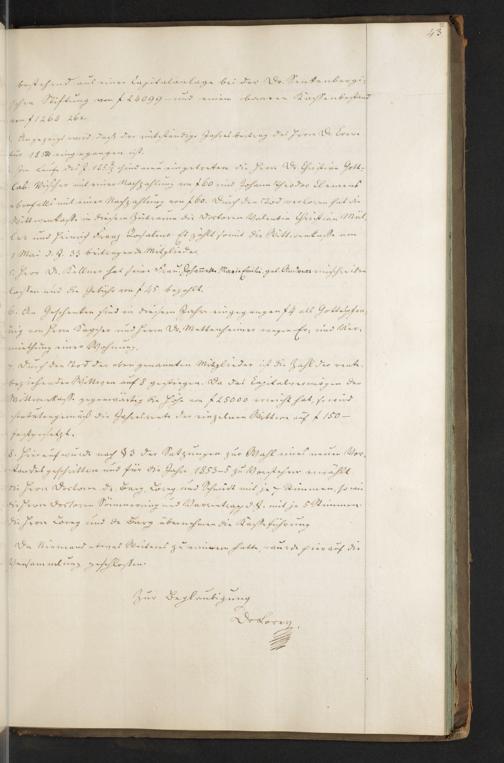 43
bestehend aus einer Capitalanlage bei der Dr. Senkenbergi-
schen Stiftung von f 24099 und einem baaren Kassenbestand
von f 1264 26x.
Angezeigt wird daß der rückständige Jahresbeitrag des Herrn Dr.
für 185 eingegangen ist.
Im Laufe des J. sind neu eingetreten die Herrn Dr. Christian Gott-
lob mit einer Nachzahlung von f 60 und Johann Theodor Clemens
ebenfalls mit einer Nachzahlung von f 60. Durch den Tod verloren hat die
Wittwenkasse in diesem Zeitraum die Doctoren Valentin Christian Mül-
ler und Heinrich Franz. Es zählt somit die Wittwenkasse am
1 Mai d. J. 33 beitragende Mitglieder.
Herr Dr. Küllner hat seine Frau, geb. Andreae einschreiben
lassen und die Gebühr von f 45 bezahlt.
6. An Geschenken sind in diesem Jahr eingegangen f 4 als Gottespfen-
nig von Herrn und Herrn Dr. Mettenheimer wegen und Ver-
miethung einer Wohnung.
7. Durch den Tod der oben genannten Mitglieder ist die Zahl der rente-
beziehenden Wittwen auf 8 gestiegen. Da das Capitalvermögen der
Wittwenkasse gegenwärtig die Höhe von f 25000 erreicht hat, so wird
statutengemäß die Jahresrente der einzelnen Wittwe auf f 150 —
festgesetzt.
8. Hierauf wurde nach § 3 der Satzungen zur Wahl eines neuen Vor-
standes geschritten und für die Jahre 1853–5 zu Vorstehern erwählt
die Herrn Doctoren de Bary, Lorey und Schmidt mit je 7 Stimmen, sowie
die Herrn Doctoren Sömmerring und Varrentrapp d. J. mit je 5 Stimmen.
die Herrn Lorey und de Bary übernehmen die Kasseführung.
Da Niemand etwas Weiteres zu erinnern hatte, wurde hierauf die
Versammlung geschlossen.
Zur Beglaubigung
Dr Lorey.